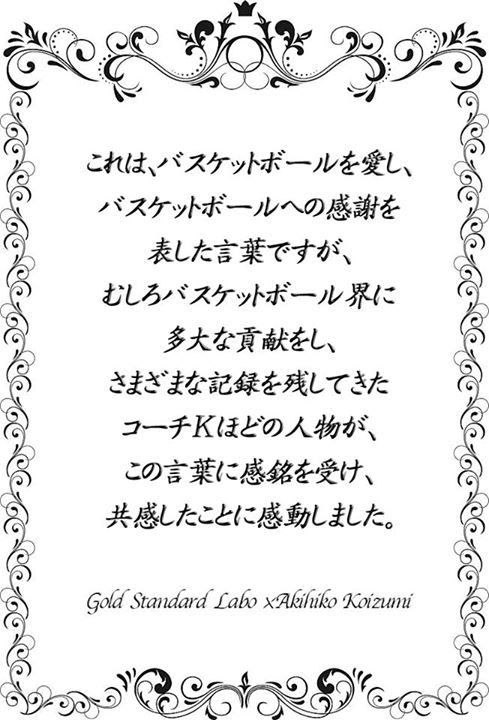 これは、バスケットボールを愛し、
バスケットボールへの感謝を
表した言葉ですが、
むしろバスケットボール界に
多大な貢献をし、
さまざまな記録を残してきた
コーチKほどの人物が、
この言葉に感銘を受け、
共感したことに感動しました。
Gold Standard Labo xAkihiko Koizumi